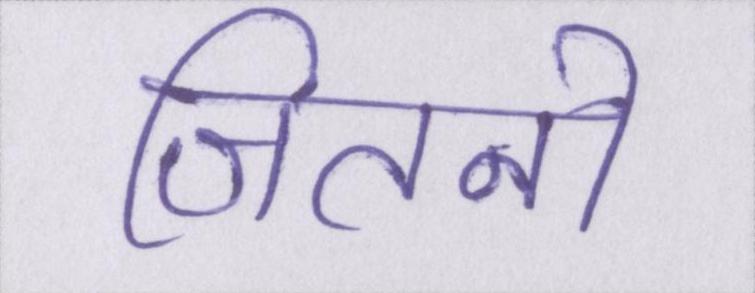 जितनी